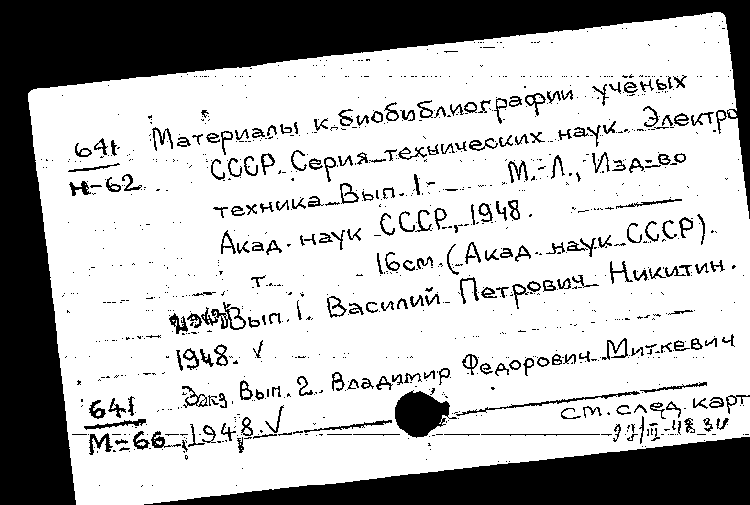 641 Материалы к биобиблиографии учёных
Н-62 СССР. Серия технических наук. Электро
техника Вып. 1- М.-Л., Изд-во
Акад. наук СССР, 1948.
т. 16см. (Акад. наук СССР).
Вып. 1. Василий Петрович Никитин.
1948. √
Вып. 2. Владимир Федорович Миткевич
641
М-66 , 1948. √
см. след. карт